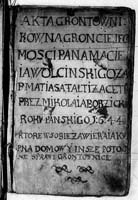 AKTA GRONTOWNI
KOW NA GRONCIE JE°
MOSCI PANA MACIE
IA WOLCINSHIGO Z
P MATIASA TALTIZA CETI
PREZ MIKOLAIA BORZICH
ROHV PANSHIGO 1544
RTORE W SOBIE ZAWIERAIA K
PNA DOMOW Y INSZE POTO
NE SPRAWI GRONTOWNICE